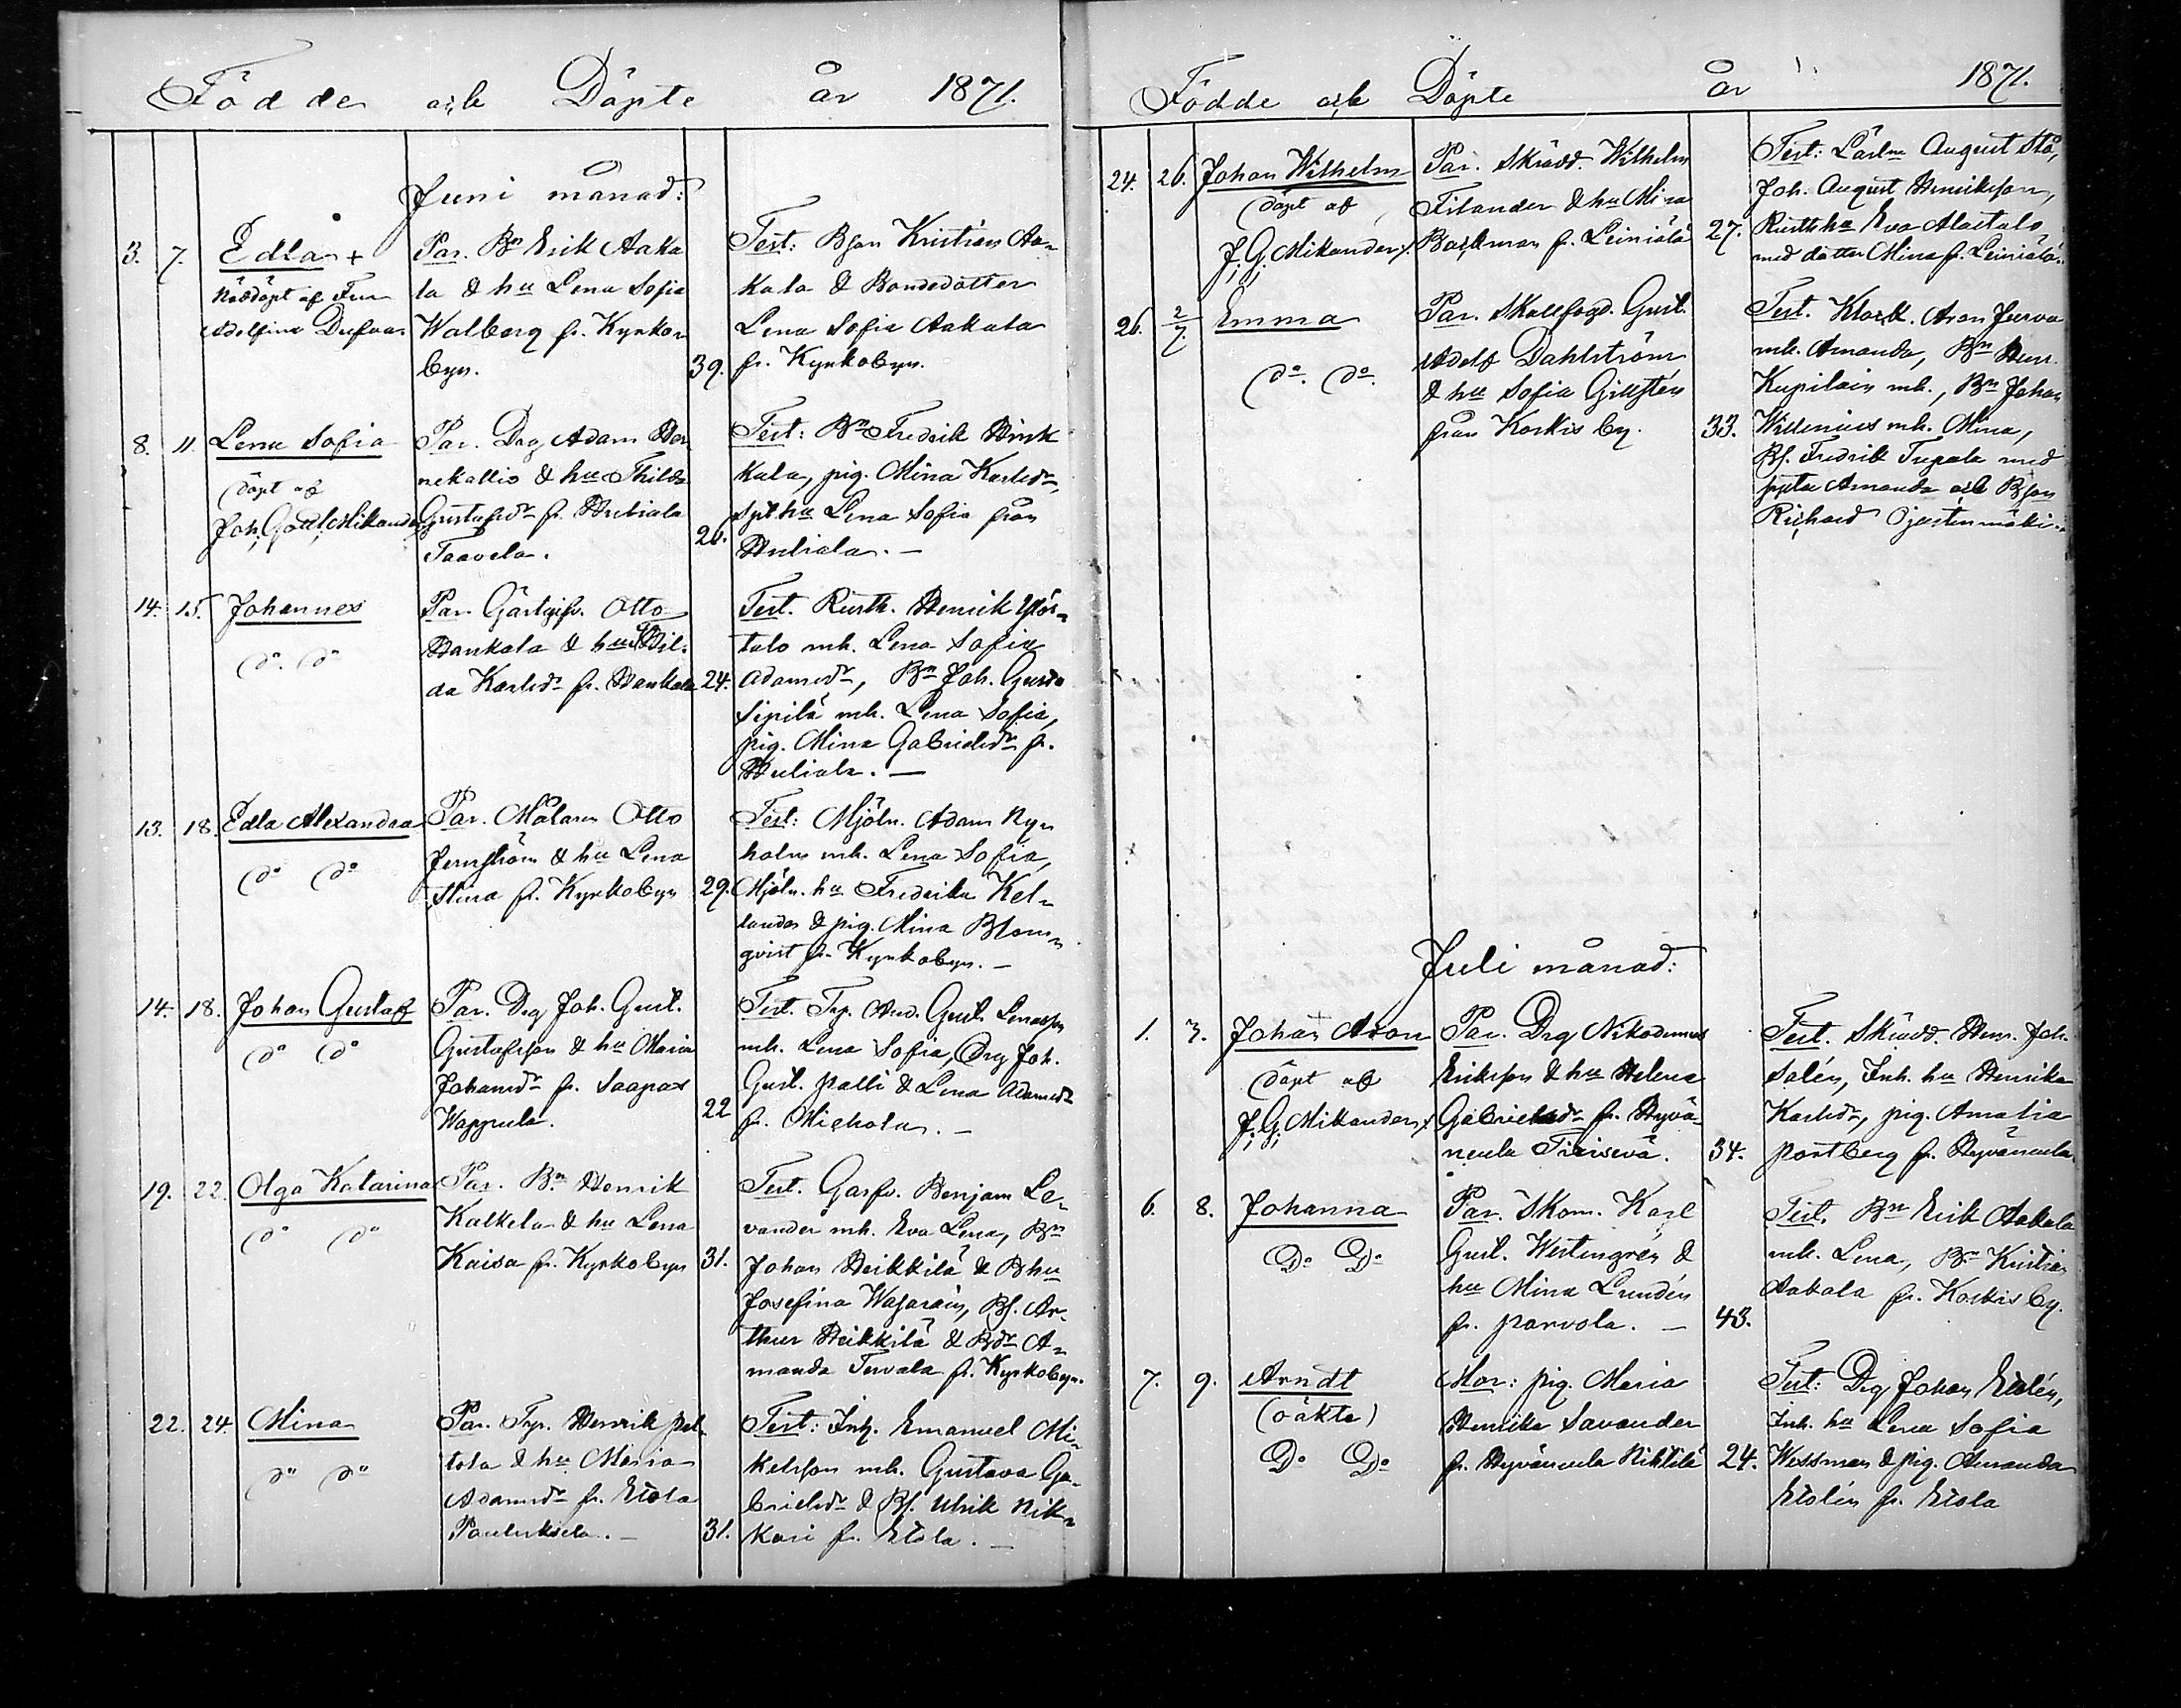 Födde och Döpte år 1871.
Juni månad:
3. 7. Edla +
Nöddöpt af Fru
Adolfina Dufvar
Par. Bn Erik Aaka
la & hu Lena Sofia
Walberg fr. Kyrko
byn.
39.
Test: Bson Kristian Aa
kala & Bondedotter
Lena Sofia Aakala
fr. Kyrkobyn.
8. 11. Lena Sofia
döpt af
Joh. Gottl. Mikander
Par. Drg Adam
nekallio & hu Thilda
Gustafsdr fr. Huliala
Taavela.
26.
Test: Bn Fredrik Hirk
kala, pig. Mina Karlsdr,
hu Lena Sofia från
Huliala. —
14. 15. Johannes
do. do
Par. Gästgifv. Otto
Hankala & hu Hil-
da Karlsdr fr. Hankala
24.
Test. Rusth. Henrik Ylös-
talo mh. Lena Sofia
Adamsdr, Bn Joh. Gusta
Sipilä mh. Lena Sofia,
pig. Mina Gabrielsdr fr.
Huliala. —
13. 18. Edla Alexandra
do do
Par. Målaren Otto
Jernström & hu Lena
Stina fr. Kyrkobyn
29.
Test: Mjöln. Adam Ny
holm mh. Lena Sofia,
Mjöln. hu Fredrika Kel
lander & pig. Mina Blom
qvist fr. Kyrkobyn. —
14. 18. Johan Gustaf
do do
Par. Drg Joh. Gust.
Gustafsson & hu Maria
Johansdr fr. Saapas
Wappula.
22
Test. Trp. And. Gust.
mh. Lena Sofia, Drg Joh.
Gust. Palli & Lena Adamsdr
fr. Michola. —
19. 22. Olga Katarina
do do
Par. Bn Henrik
Kalkela & hu Lena
Kaisa fr. Kyrkobyn
31.
Test. Garfv. Benjam Le
vander mh. Eva Lena, Bn
Johan Heikkilä & B hu
Josefina Wasarain, Bs. Ar
thur Heikkilä & Bdr A
manda Tervala fr. Kyrkobyn.
22. 24. Mina
do do
Par. Trp. Henrik Pel
tola & hu Maria
Adamsdr fr. Etola
Pauluksela. —
31.
Test: Inh. Emanuel Mi
kelsson mh. Gustava Ga
brielsdr & Bs. Ulrik Nik
kari fr. Etola. —
Födde och Döpte år 1871.
24. 26. Johan Wilhelm
döpt af
J. G. Mikander
Par. Skrädd. Wilhelm
Filander & hu Mina
Backman fr. Leiniälä
27.
Test: August Stå,
Joh. August Henriksson,
Rusth. hu Eva Alastalo
med dotter Mina fr. Leiniälä.
26. 2/7. Emma
do. do.
Par. Skallfogd. Gust.
Adolf Dahlström
& hu Sofia Gillstén
från Koskis by.
33.
Test. Klock. Aron Jurva
mh. Amanda, Bn Henr.
Kupilain mh., Bn Johan
Widenius mh. Mina,
Bs. Fredrik Tupala med
syster Amanda och Bson
Richard Ojastenmäki.
Juli månad:
1. 3. Johan Aron
döpt af
J. G. Mikander
Par. Drg Nikodemus
Eriksson & hu Helena
Gabrielsdr fr. Hyvä
neula Tiirisevä.
34.
Test. Skrädd. Henr. Joh.
Salén, Inh. hu Henrika
Karlsdr, pig. Amalia
Portberg fr. Hyväneula
6. 8. Johanna
Do Do
Par. Skom. Karl
Gust. Westingrén &
hu Mina Lundén
fr. Parvola. —
43.
Test. Bn Erik Aakala
mh. Lena, Bn Kristian
Aakala fr. Koskis by.
7. 9. Arndt
(oäkta)
Do Do
Mor: pig. Maria
Henrika Savander
fr. Hyväneula Nikkilä
24.
Test: Drg Johan Etolén,
Inh. hu Lena Sofia
Wessman & pig. Amanda
Etolén fr. Etola